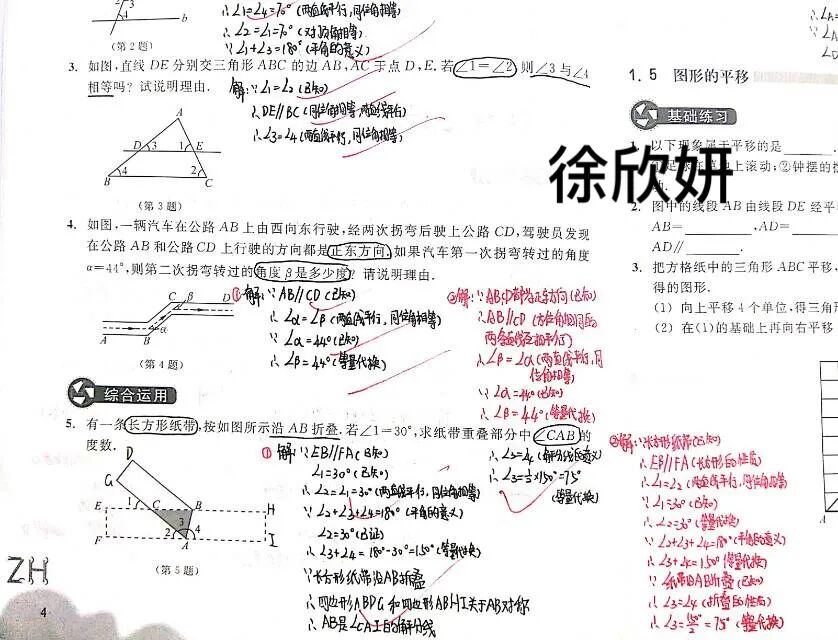 ∴∠1=∠4=70°(两直线平行,同位角相等)
∴∠2=∠1=70°(对顶角相等)
∵∠1+∠3=180°(平角的意义)
(第2题)
3. 如图,直线 DE 分别交三角形 ABC 的边 AB,AC 于点 D,E.若∠1=∠2,则∠3与∠4
相等吗?试说明理由.
解:∵∠1=∠2(已知)
∴DE//BC(同位角相等,两直线平行)
∴∠3=∠4(两直线平行,同位角相等)
(第3题)
4. 如图,一辆汽车在公路 AB 上由西向东行驶,经两次拐弯后驶上公路 CD,驾驶员发现
在公路 AB 和公路 CD 上行驶的方向都是正东方向.如果汽车第一次拐弯转过的角度
α=44°,则第二次拐弯转过的角度 β 是多少度?请说明理由.
①解:∵AB//CD(已知)
∴∠α=∠β(两直线平行,同位角相等)
∵∠α=44°(已知)
∴∠β=44°(等量代换)
(第4题)
∴AB//CD
∴∠β=∠α(两直线平行,同
位角相等)
∵∠α=44°(已知)
∴∠β=44°(等量代换)
综合运用
5. 有一条长方形纸带,按如图所示沿 AB 折叠.若∠1=30°,求纸带重叠部分中∠CAB的
度数.
①解:∵EB//FA(已知)
∠1=30°(已知)
∴∠2=∠1=30°(两直线平行,同位角相等)
∵∠2+∠3+∠4=180°(平角的意义)
∠2=30°(已证)
∴∠3+∠4=180°-30°=150°(等量代换)
∵长方形纸带沿AB折叠
∴四边形ABDG和四边形ABHI关于AB对称
∴AB是∠CAI的角平分线
∴∠3=∠4(角平分线的意义)
∴∠3=½×150°=75°
(等量代换)
②解:∵长方形纸带(已知)
∴EB//FA(长方形的性质)
∴∠1=∠2(两直线平行,同位角相等)
∵∠1=30°(已知)
∴∠2=30°(等量代换)
∵∠2+∠3+∠4=180°(平角的意义)
∴∠3+∠4=150°(等量代换)
∵纸带沿AB折叠(已知)
∴∠3=∠4(折叠的性质)
∴∠3=150°/2=75°(等量代换)
(第5题)
ZH
4
徐欣妍
1.5 图形的平移
基础练习
1. 以下现象属于平移的是
上滚动;②钟摆的
2. 图中的线段 AB 由线段 DE 经平
AB= ,AD=
AD//
3. 把方格纸中的三角形 ABC 平移,
得的图形.
(1) 向上平移4个单位,得三角形
(2) 在(1)的基础上再向右平移